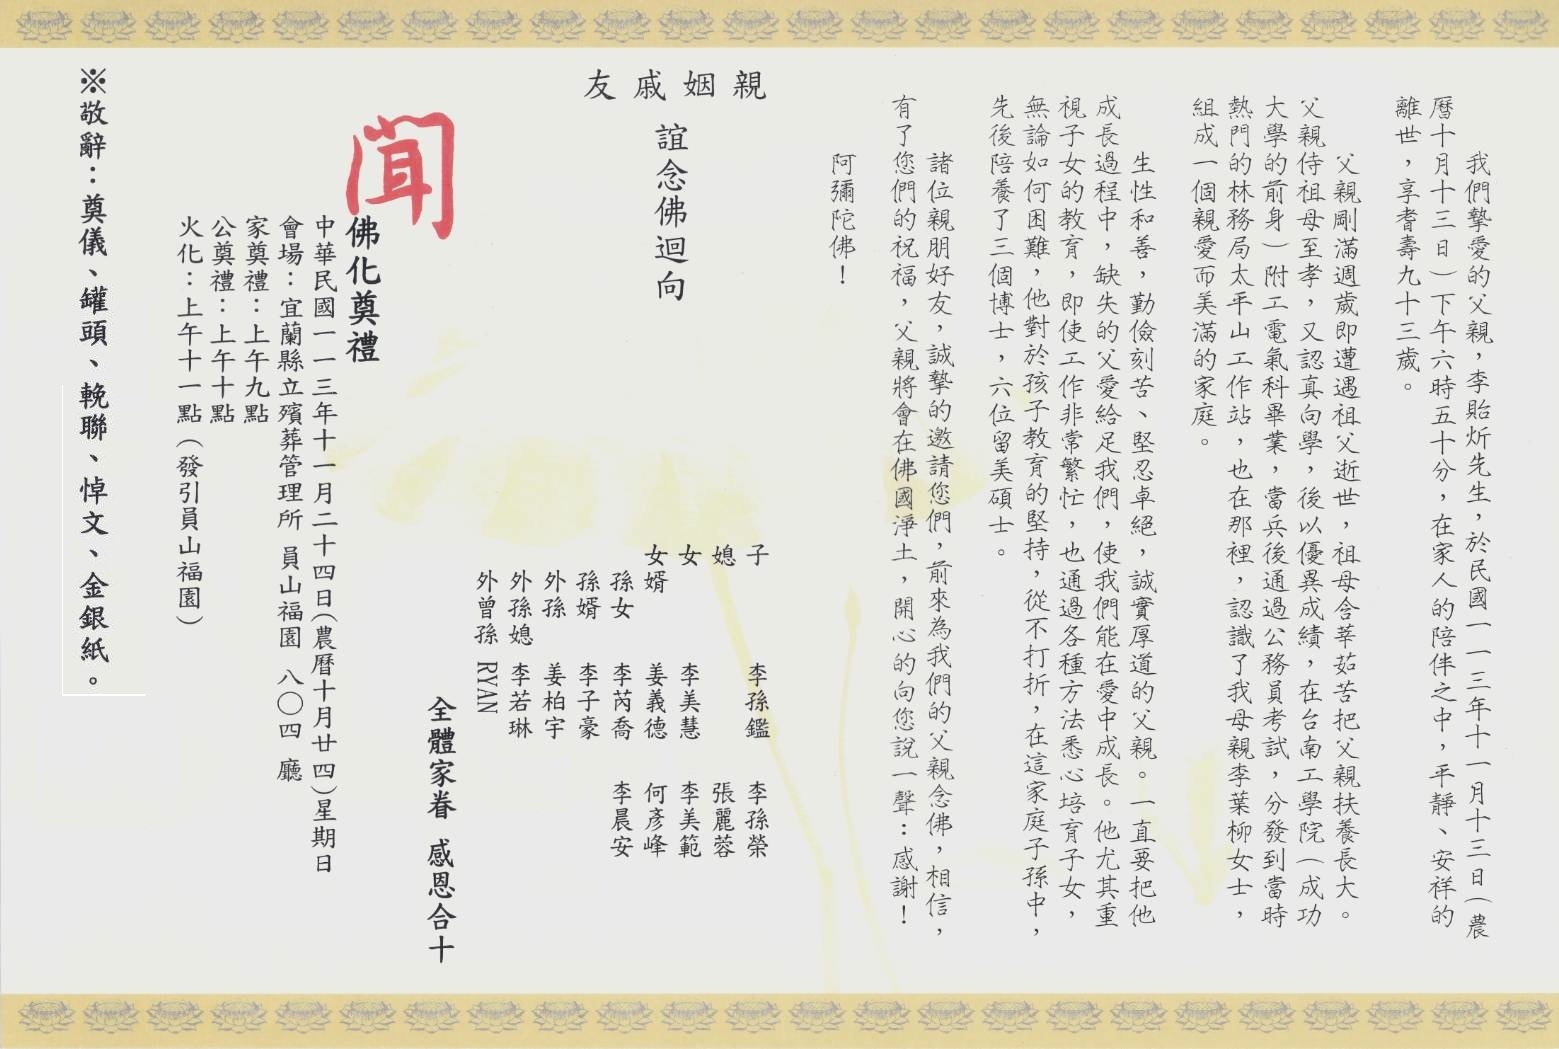 我們摯愛的父親，李貽炘先生，於民國一一三年十一月十三日（農
曆十月十三日）下午六時五十分，在家人的陪伴之中，平靜、安祥的
離世，享耆壽九十三歲。
父親剛滿週歲即遭遇祖父逝世，祖母含莘茹苦把父親扶養長大。
父親侍祖母至孝，又認真向學，後以優異成績，在台南工學院（成功
大學的前身）附工電氣科畢業，當兵後通過公務員考試，分發到當時
熱門的林務局太平山工作站，也在那裡，認識了我母親李葉柳女士，
組成一個親愛而美滿的家庭。
生性和善，勤儉刻苦、堅忍卓絕，誠實厚道的父親。一直要把他
成長過程中，缺失的父愛給足我們，使我們能在愛中成長。他尤其重
視子女的教育，即使工作非常繁忙，也通過各種方法悉心培育子女，
無論如何困難，他對於孩子教育的堅持，從不打折，在這家庭子孫中，
先後陪養了三個博士，六位留美碩士。
諸位親朋好友，誠摯的邀請您們，前來為我們的父親念佛，相信，
有了您們的祝福，父親將會在佛國淨土，開心的向您說一聲：感謝！
阿彌陀佛！
親姻戚友
誼念佛迴向
子 李孫鑑 李孫榮
媳 張麗蓉
女 李美慧 李美範
女婿 姜義德 何彥峰
孫女 李芮喬 李晨安
孫婿 李子豪
外孫 姜柏宇
外孫媳 李若琳
外曾孫 RYAN
全體家眷 感恩合十
聞
佛化奠禮
中華民國一一三年十一月二十四日（農曆十月廿四）星期日
會場：宜蘭縣立殯葬管理所 員山福園 八〇四 廳
家奠禮：上午九點
公奠禮：上午十點
火化：上午十一點（發引員山福園）
※敬辭：奠儀、罐頭、輓聯、悼文、金銀紙。